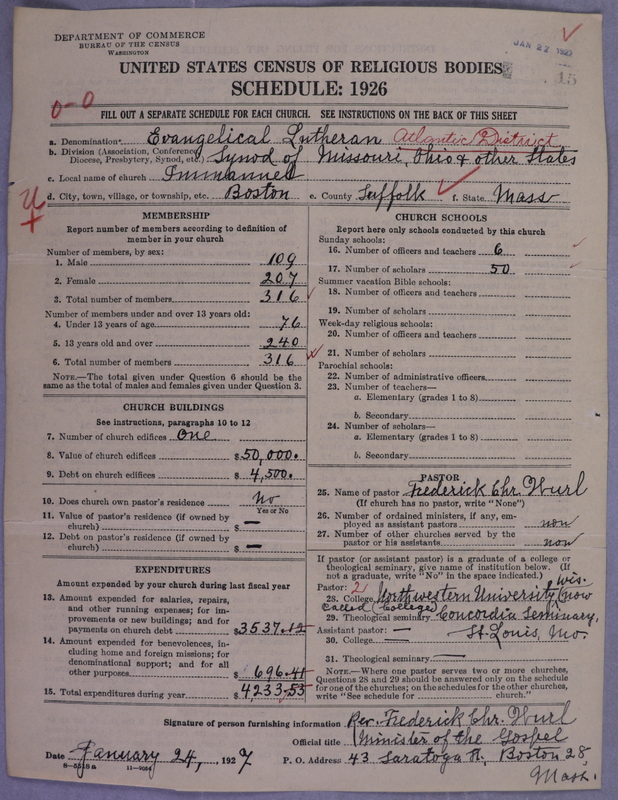 DEPARTMENT OF COMMERCE
BUREAU OF THE CENSUS
WASHINGTON
JAN 27 1927
15
UNITED STATES CENSUS OF RELIGIOUS BODIES
SCHEDULE: 1926
0-0
FILL OUT A SEPARATE SCHEDULE FOR EACH CHURCH. SEE INSTRUCTIONS ON THE BACK OF THIS SHEET
a. Denomination Evangelical Lutheran Atlantic District
b. Division (Association, Conference, Diocese, Presbytery, Synod, etc.) Synod of Missouri, Ohio & other States
c. Local name of church Immanuel
d. City, town, village, or township, etc. Boston e. County Suffolk f. State Mass
MEMBERSHIP
Report number of members according to definition of
member in your church
Number of members, by sex:
1. Male 109
2. Female 207
3. Total number of members 316
Number of members under and over 13 years old:
4. Under 13 years of age 76
5. 13 years old and over 240
6. Total number of members 316
NOTE.—The total given under Question 6 should be the
same as the total of males and females given under Question 3.
CHURCH BUILDINGS
See instructions, paragraphs 10 to 12
7. Number of church edifices One
8. Value of church edifices $50,000.
9. Debt on church edifices $ 4,500.
10. Does church own pastor's residence No
Yes or No
11. Value of pastor's residence (if owned by
church) $ —
12. Debt on pastor's residence (if owned by
church) $ —
EXPENDITURES
Amount expended by your church during last fiscal year
13. Amount expended for salaries, repairs,
and other running expenses; for im-
provements or new buildings; and for
payments on church debt $3537.12
14. Amount expended for benevolences, in-
cluding home and foreign missions; for
denominational support; and for all
other purposes $ 696.41
15. Total expenditures during year $ 4233.53
CHURCH SCHOOLS
Report here only schools conducted by this church
Sunday schools:
16. Number of officers and teachers 6
17. Number of scholars 50
Summer vacation Bible schools:
18. Number of officers and teachers
19. Number of scholars
Week-day religious schools:
20. Number of officers and teachers
21. Number of scholars
Parochial schools:
22. Number of administrative officers
23. Number of teachers—
a. Elementary (grades 1 to 8)
b. Secondary
24. Number of scholars—
a. Elementary (grades 1 to 8)
b. Secondary
PASTOR
25. Name of pastor Frederick Chr. Wurl
(If church has no pastor, write "None")
26. Number of ordained ministers, if any, em-
ployed as assistant pastors non
27. Number of other churches served by the
pastor or his assistants non
If pastor (or assistant pastor) is a graduate of a college or
theological seminary, give name of institution below. (If
not a graduate, write "No" in the space indicated.) Wis.
Pastor: 2
28. College Northwestern University (now
called (College)
29. Theological seminary Concordia Seminary,
Assistant pastor: — St. Louis, Mo.
30. College —
31. Theological seminary —
NOTE.—Where one pastor serves two or more churches,
Questions 28 and 29 should be answered only on the schedule
for one of the churches; on the schedules for the other churches,
write "See schedule for church."
Signature of person furnishing information Rev. Frederick Chr. Wurl
Official title Minister of the Gospel
Date January 24, 1927 P. O. Address 43 Saratoga St., Boston 28,
Mass.
8-5518a 11-9054